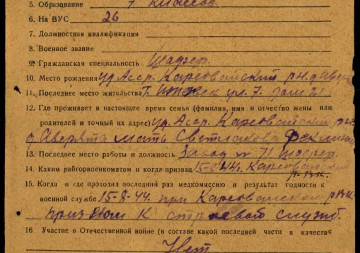 5. Образование 7 классов
6. На ВУС 26
7. Должностная квалификация
8. Военное звание
9. Гражданская специальность Шофер.
10. Место рождения Удм. Асср. Каргобайский р-н
11. Последнее место жительства г. Ижевск ул. 7. дом 21
12. Где проживает в настоящее время семья (фамилия, имя и отчество жены или
родителей и точный их адрес) Удм. Асср. Карсовайский р-н
мать Светлакова
13. Последнее место работы и должность Завод № 71 шофер
14. Каким райгорвоенкоматом и когда призван 15-8-44. Карсовайским
РВК.
15. Когда и где проходил последний раз медкомиссию и результат годности к
военной службе 15-8-44. при Карсовайском РВК.
признан к строевой служб.
16 Участие в Отечественной войне (в составе какой последней части в качестве
Нет